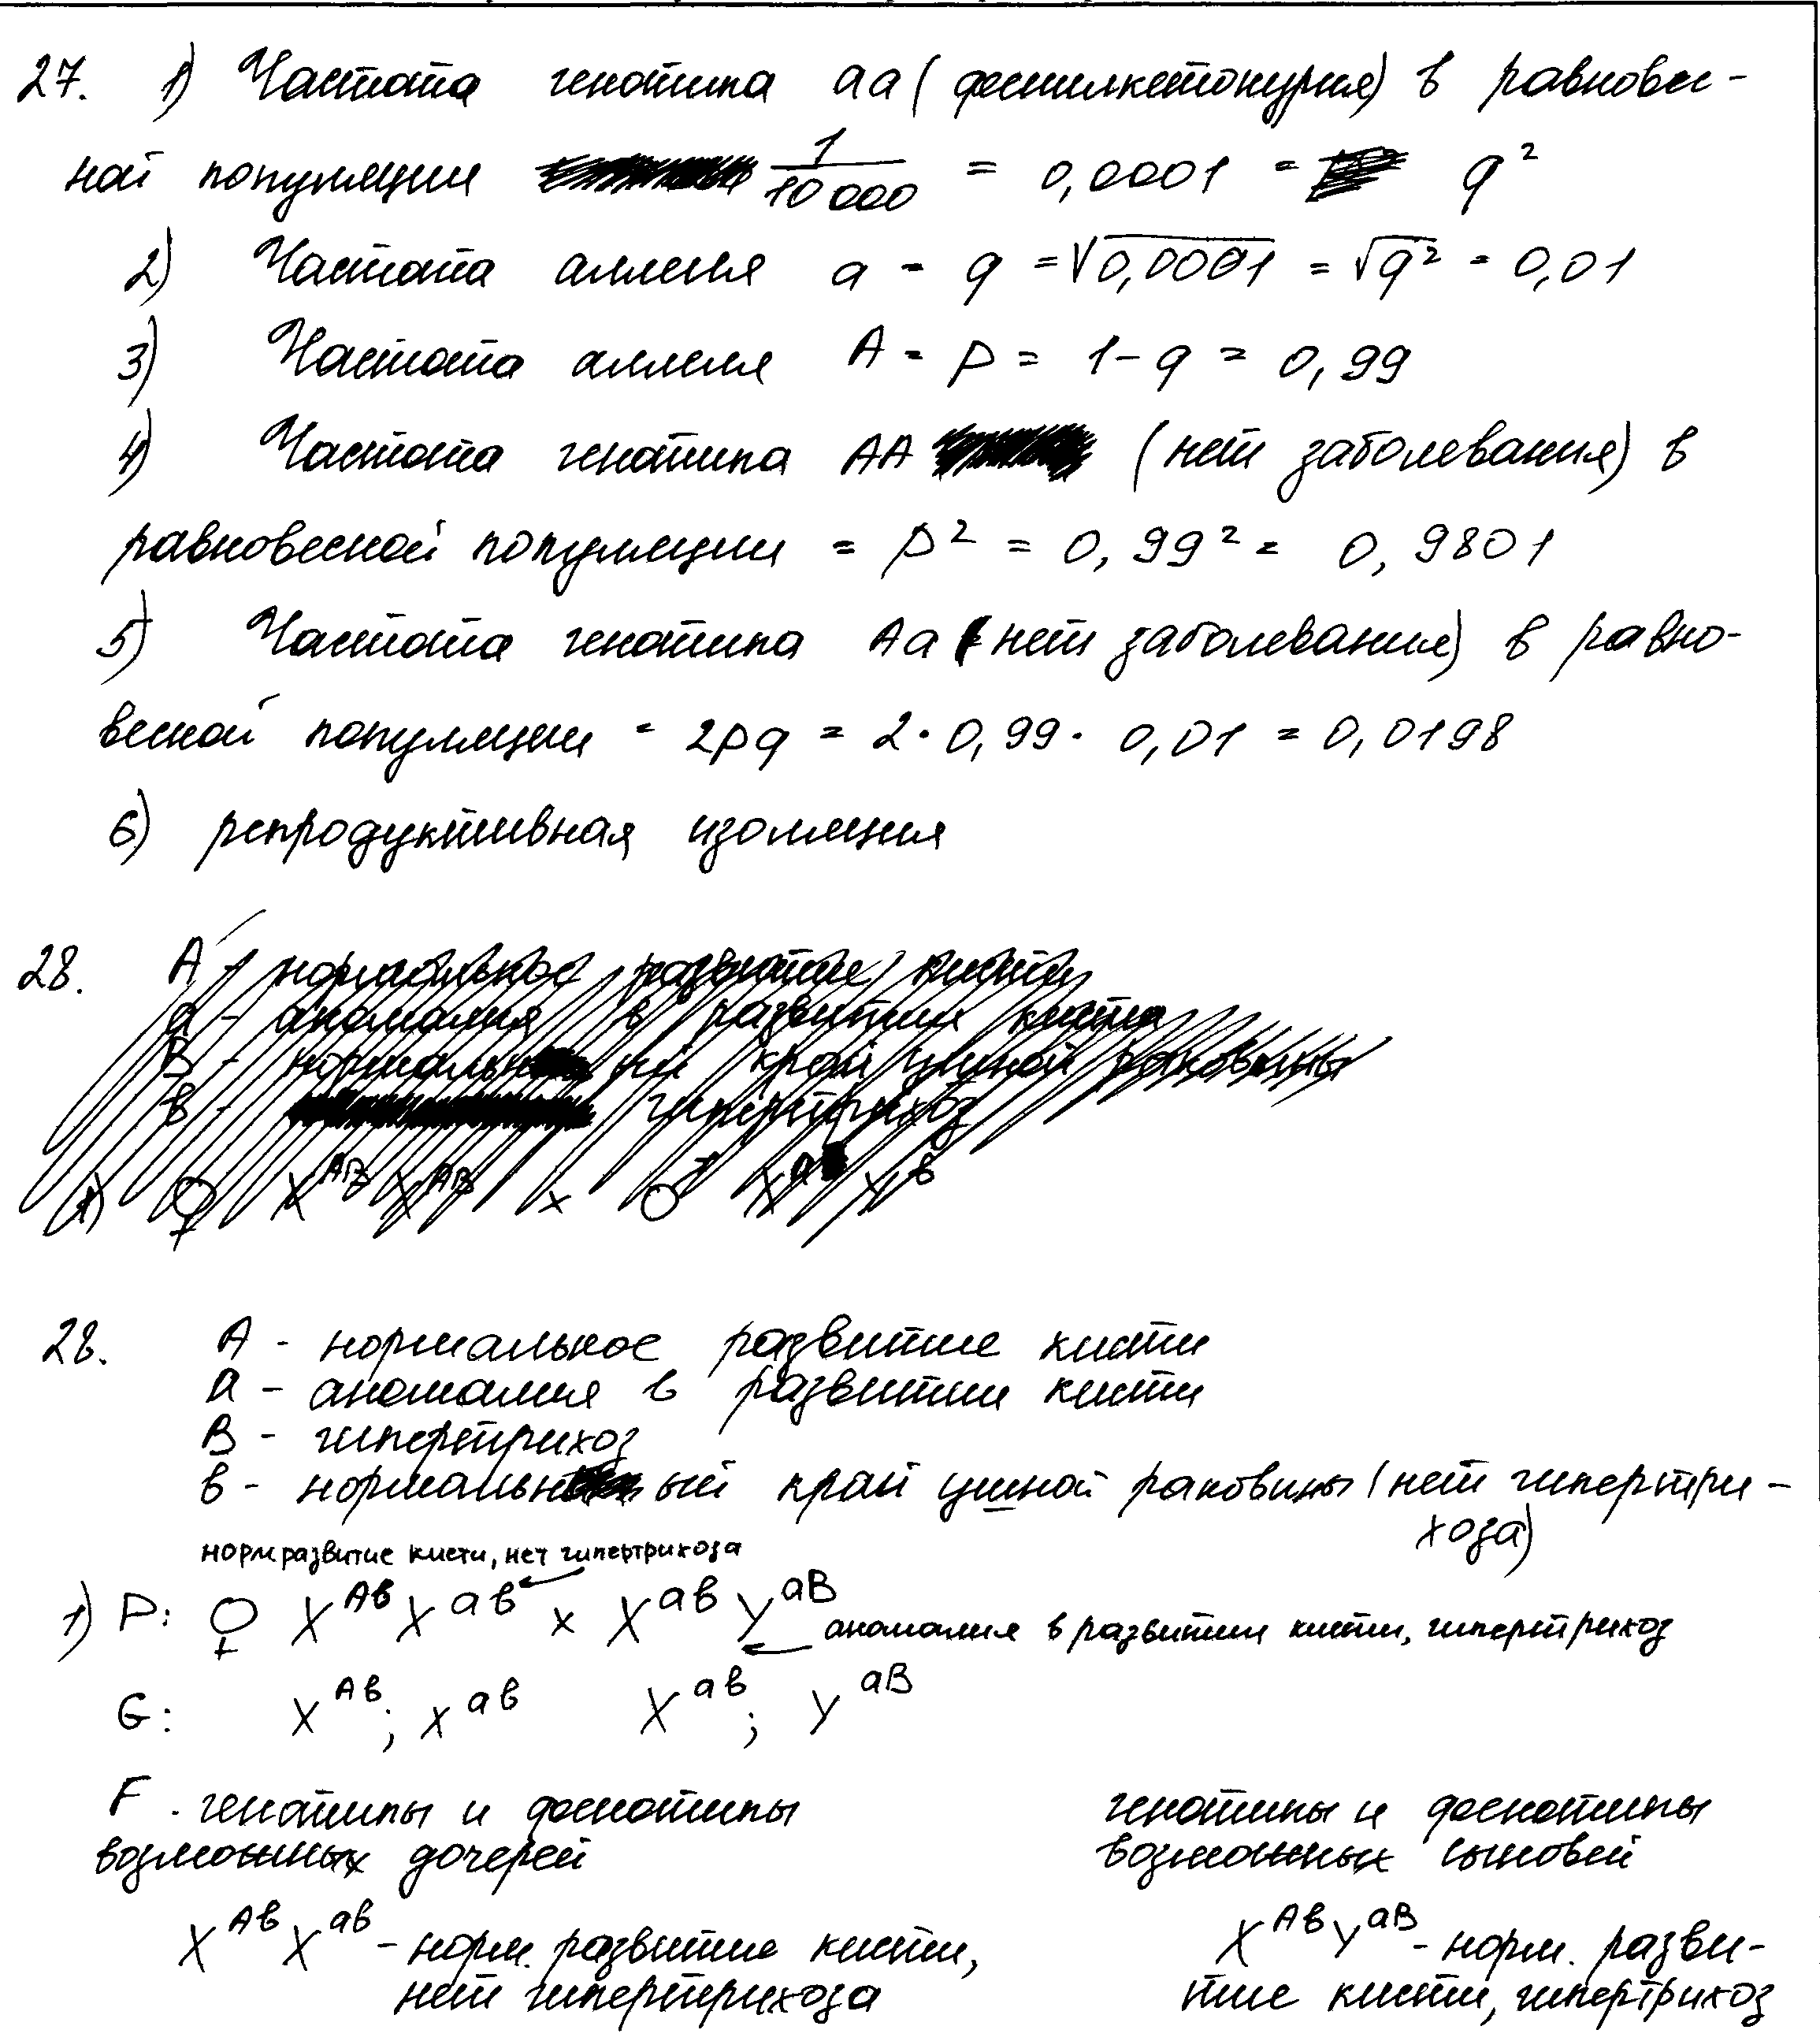 27. 1) Частота генотипа аа (фенилкетонурия) в равновес-
ной популяции 1/10 000 = 0,0001 = q²
2) Частота аллеля a = q = √0,0001 = √q² = 0,01
3) Частота аллеля A = p = 1 - q = 0,99
4) Частота генотипа AA (нет заболевания) в
равновесной популяции = p² = 0,99² = 0,9801
5) Частота генотипа Aa (нет заболевания) в равно-
весной популяции = 2pq = 2 · 0,99 · 0,01 = 0,0198
6) репродуктивная изоляция
28. A - нормальное развитие кисти
a - аномалия в развитии кисти
B - нормальный край ушной раковины
в - гипертрихоз
1) ♀ X^AB X^AB x ♂
28. A - нормальное развитие кисти
a - аномалия в развитии кисти
B - гипертрихоз
в - нормальный край ушной раковины (нет гипертри-
хоза)
норм развитие кисти, нет гипертрихоза
1) P: ♀ X^Aв X^aв x X^aв Y^aB
аномалия в развитии кисти, гипертрихоз
G: X^Aв; X^aв X^aв; Y^aB
F - генотипы и фенотипы
возможных дочерей
X^Aв X^aв - норм. развитие кисти,
нет гипертрихоза
генотипы и фенотипы
возможных сыновей
X^Aв Y^aB - норм. разви-
тие кисти, гипертрихоз